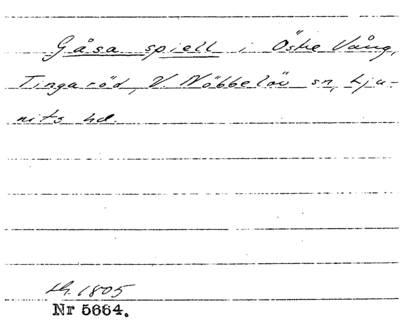 Gåsa spiell i Östre Vång,
Tingaröd, V. Nöbbelöv sn, Lju-
nits hd.
1805
Nr 5664.